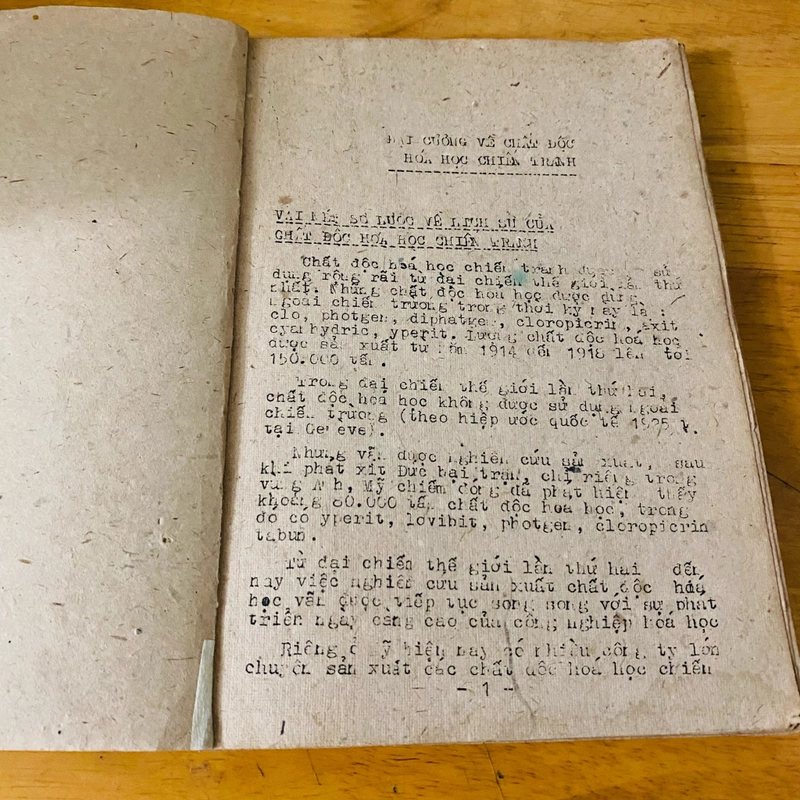 ĐẠI CƯƠNG VỀ CHẤT ĐỘC
HÓA HỌC CHIẾN TRANH
VÀI NÉT SƠ LƯỢC VỀ LỊCH SỬ CỦA
CHẤT ĐỘC HOÁ HỌC CHIẾN TRANH
Chất độc hoá học chiến tranh được sử
dụng rộng rãi từ đại chiến thế giới lần thứ
nhất. Những chất độc hoá học được dùng
ngoài chiến trường trong thời kỳ này là :
clo, photgen, diphatgen, cloropicrin, axit
cyanhydric, yperit. Lượng chất độc hoá học
được sản xuất từ năm 1914 đến 1918 lên tới
150.000 tấn.
Trong đại chiến thế giới lần thứ hai,
chất độc hoá học không được sử dụng ngoài
chiến trường (theo hiệp ước quốc tế 1925
tại Geneve).
Nhưng vẫn được nghiên cứu sản xuất, sau
khi phát xít Đức bại trận, chỉ riêng trong
vùng Anh, Mỹ chiếm đóng đã phát hiện thấy
khoảng 60.000 tấn chất độc hoá học, trong
đó có yperit, lovibit, photgen, cloropicrin
tabun.
Từ đại chiến thế giới lần thứ hai đến
nay việc nghiên cứu sản xuất chất độc hoá
học vẫn được tiếp tục song song với sự phát
triển ngày càng cao của công nghiệp hoá học
Riêng ở Mỹ hiện nay có nhiều công ty lớn
chuyên sản xuất các chất độc hoá học chiến
- 1 -